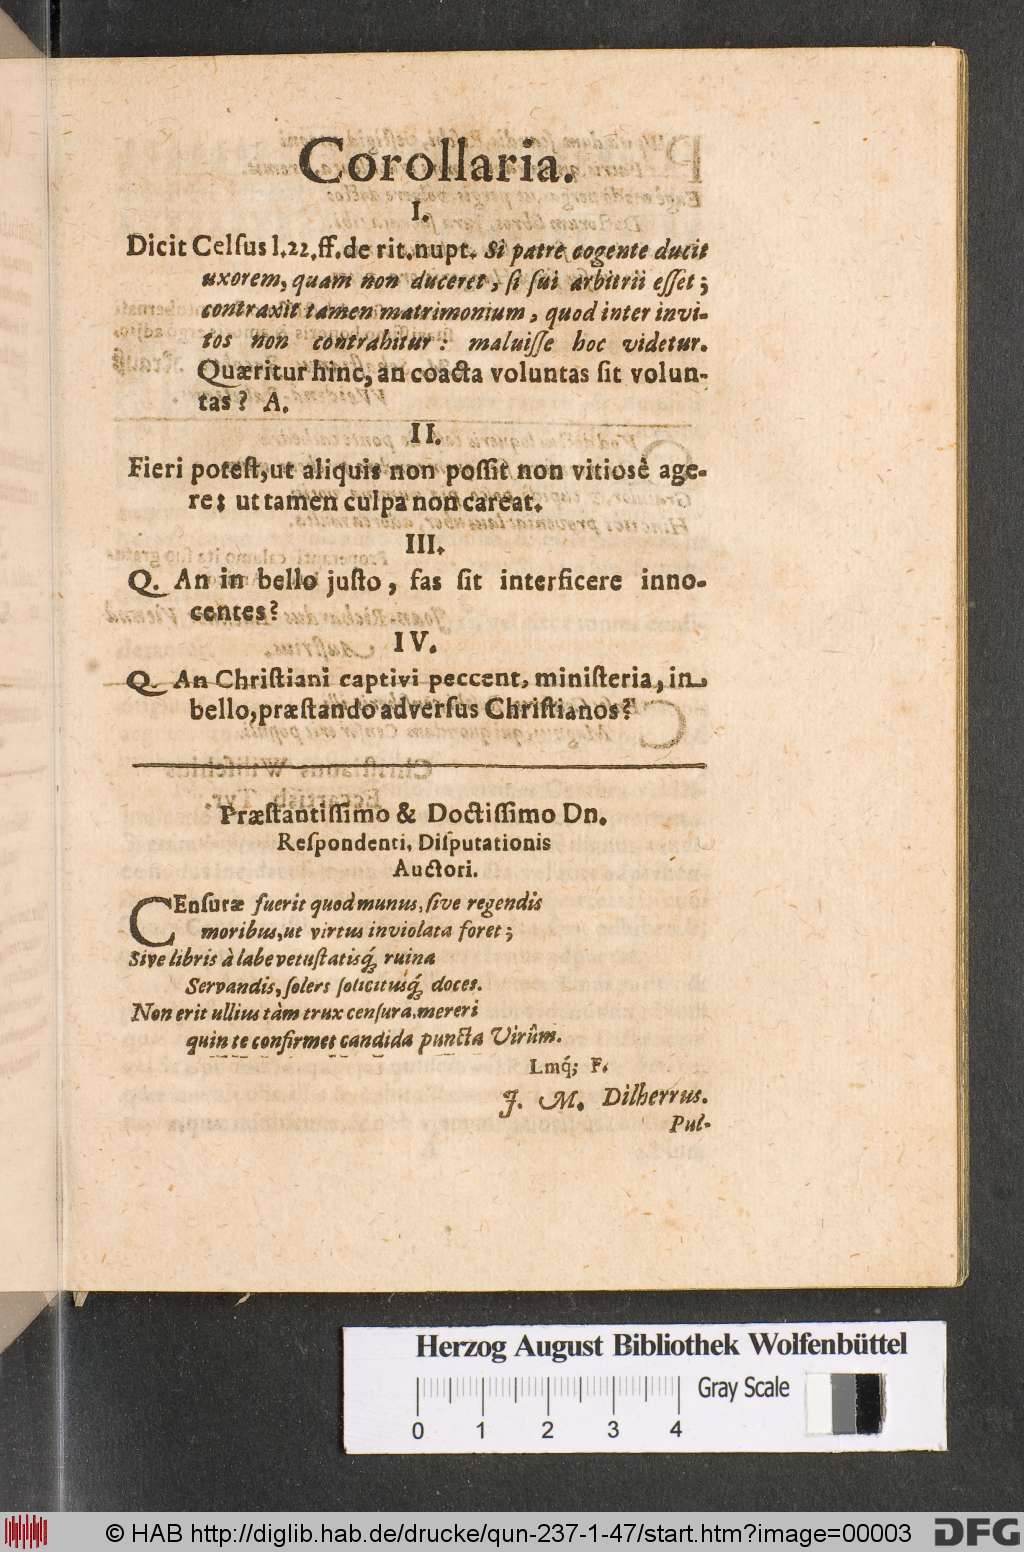 Corollaria.
I.
Dicit Celſus l.22.ff.de rit.nupt. Si patre cogente ducit
uxorem, quam non duceret, ſi ſui arbitrii eſſet;
contraxit tamen matrimonium, quod inter invi-
tos non contrahitur: maluiſſe hoc videtur.
Quæritur hinc, an coacta voluntas ſit volun-
tas? A.
II.
Fieri poteſt, ut aliquis non poſſit non vitiosè age-
re; ut tamen culpa non careat.
III.
Q. An in bello juſto, fas ſit interficere inno-
centes?
IV.
Q. An Chriſtiani captivi peccent, miniſteria, in
bello, præſtando adverſus Chriſtianos?
Præſtantiſſimo & Doctiſſimo Dn.
Reſpondenti, Diſputationis
Auctori.
CEnſuræ fuerit quod munus, ſive regendis
moribus, ut virtus inviolata foret;
Sive libris à labe vetuſtatisq́; ruina
Servandis, ſolers ſolicitusq́; doces.
Non erit ullius tàm trux cenſura, mereri
quin te confirmet candida puncta Virûm.
Lmq́; F.
J. M. Dilherrus.
Pul-
Herzog August Bibliothek Wolfenbüttel
Gray Scale
0 1 2 3 4
© HAB http://diglib.hab.de/drucke/qun-237-1-47/start.htm?image=00003
DFG